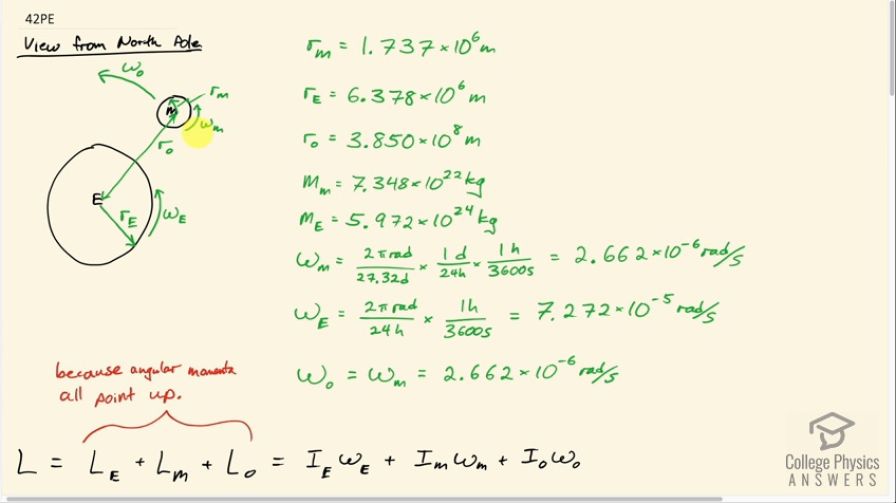 42PE
View from North Pole
ω₀
m
rₘ
ωₘ
r₀
E
r_E
ω_E
rₘ = 1.737×10⁶ m
r_E = 6.378×10⁶ m
r₀ = 3.850×10⁸ m
mₘ = 7.348×10²² kg
m_E = 5.972×10²⁴ kg
ωₘ = 2π rad / 27.32d × 1d / 24h × 1h / 3600s = 2.662×10⁻⁶ rad/s
ω_E = 2π rad / 24h × 1h / 3600s = 7.272×10⁻⁵ rad/s
ω₀ = ωₘ = 2.662×10⁻⁶ rad/s
because angular momenta
all point up.
L = L_E + Lₘ + L₀ = I_E ω_E + Iₘ ωₘ + I₀ ω₀
College Physics
ANSWERS